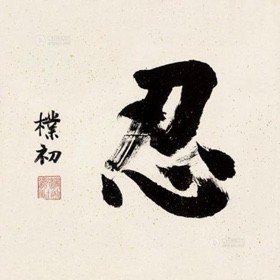 忍
樸初